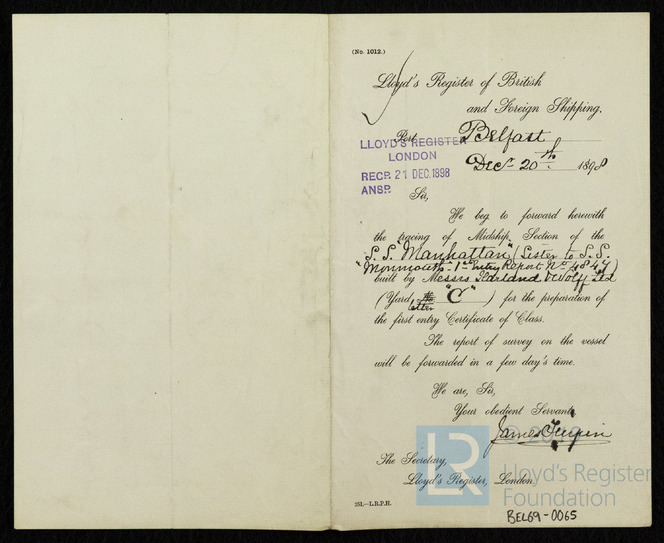 (No. 1012.)
Lloyd's Register of British
and Foreign Shipping.
Port Belfast
LLOYD'S REGISTER
LONDON
RECD. 21 DEC. 1898
ANSD.
Decr. 20th 1898
Sir,
We beg to forward herewith
the tracing of Midship Section of the
S.S. "Manhattan" (Sister to S.S.
"Monmouth" - 1st Entry Report No. 4847)
built by Messrs Harland & Wolff Ltd
(Yard No. letter "C") for the preparation of
the first entry Certificate of Class.
The report of survey on the vessel
will be forwarded in a few day's time.
We are, Sir,
Your obedient Servant,
James Turpin
The Secretary,
Lloyd's Register, London.
251.—L.R.P.H.
LR
© 20
Lloyd's Register
Foundation
BEL69-0065